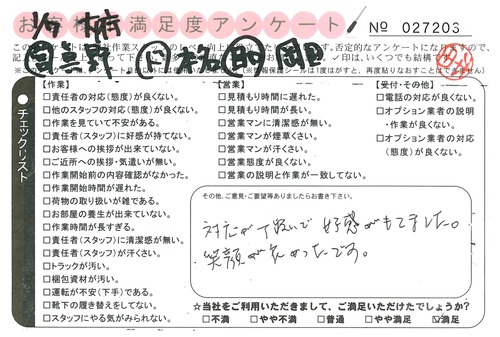 お客様満足度アンケート
№ 027203
【作業】
□責任者の対応(態度)が良くない。
□他のスタッフの対応(態度)が良くない。
□作業を見ていて不安がある。
□責任者(スタッフ)に好感が持てない。
□お客様への挨拶が出来ていない。
□ご近所への挨拶・気遣いが無い。
□作業開始前の内容確認がなかった。
□作業開始時間が遅れた。
□荷物の取り扱いが雑である。
□お部屋の養生が出来ていない。
□作業時間が長すぎる。
□責任者(スタッフ)に清潔感が無い。
□責任者(スタッフ)が汗くさい。
□トラックが汚い。
□梱包資材が汚い。
□運転が不安(下手)である。
□靴下の履き替えをしていない。
□スタッフにやる気がみられない。
【営業】
□見積もり時間に遅れた。
□見積もり時間が長い。
□営業マンに清潔感が無い。
□営業マンが煙草くさい。
□営業マンが汗くさい。
□営業態度が良くない。
□営業の説明と作業が一致してない。
【受付・その他】
□電話の対応が良くない。
□オプション業者の説明
・作業が良くない。
□オプション業者の対応
(態度)が良くない。
チェックリスト
その他、ご意見・ご要望等ありましたらお書き下さい。
対応が丁寧で好感がもてました。
笑顔が良かったです。
☆当社をご利用いただきまして、ご満足いただけたでしょうか?
□不満 □やや不満 □普通 □やや満足 ☑満足